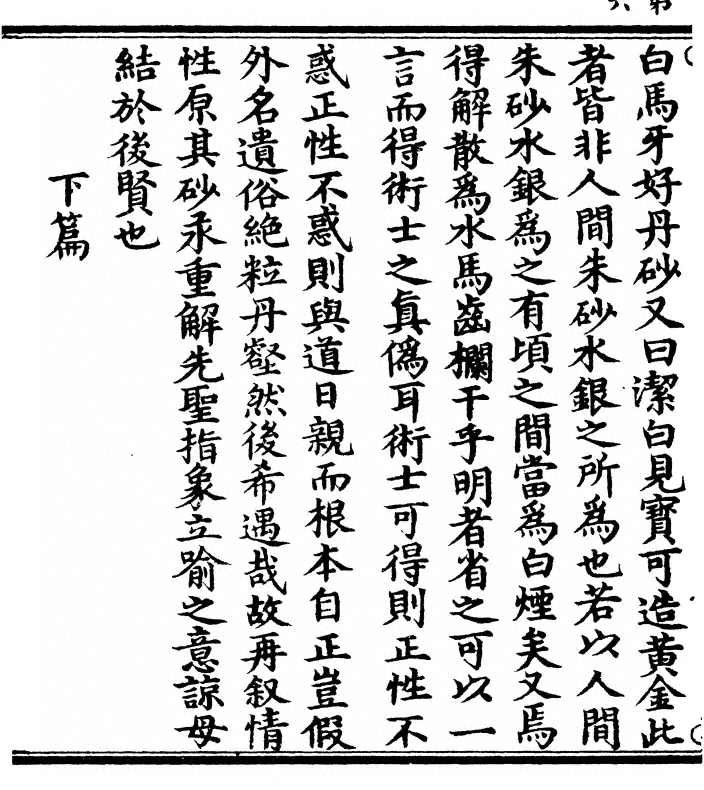 白馬牙好丹砂又曰潔白見寳可造黄金此
者皆非人間朱砂水銀之所為也若以人間
朱砂水銀為之有頃之間當為白煙矣又焉
得解散為水馬齒欄干乎明者省之可以一
言而得術士之真偽耳術士可得則正性不
惑正性不惑則與道日親而根本自正豈假
外名遺俗絶粒丹壑然後希遇哉故再叙情
性原其砂汞重解先聖指象立喻之意諒毋
結於後賢也
下篇